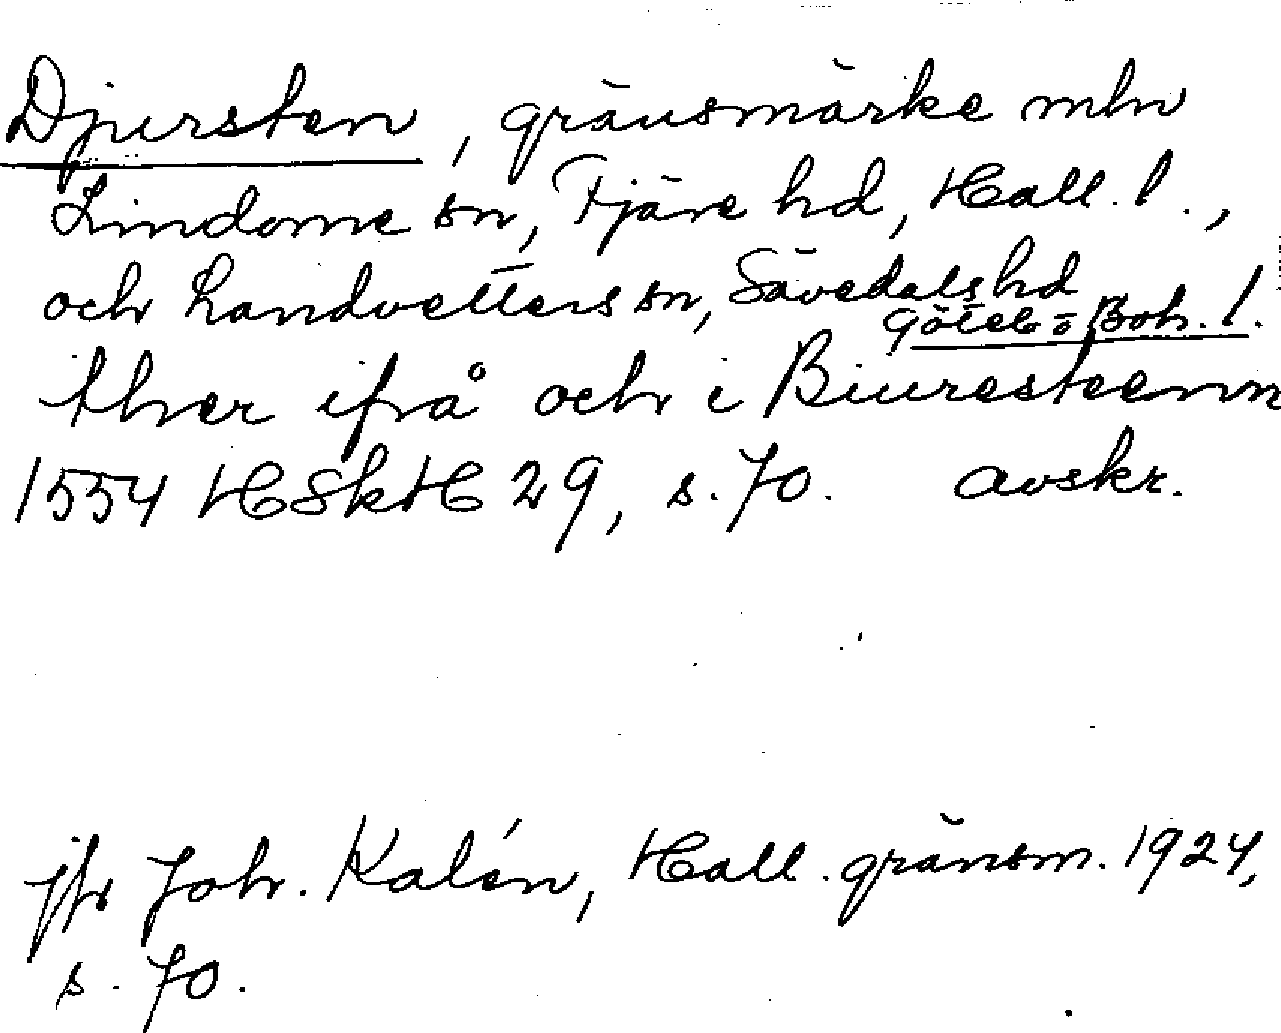 Djursten, gränsmärke mln
Lindome sn, Fjäre hd, Hall. l.,
och Landvetters sn, Sävedals hd
Göteb o Boh. l.
ther ifrå och i Biuresteenn
1554 HSkH 29, s. 70. avskr.
jfr Joh. Kalén, Hall. gränsm. 1924,
s. 70.